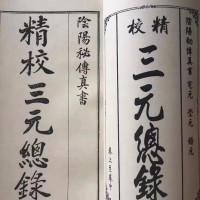 陰陽秘傳真書 宅元 塋元 婚元
精校
三元總錄
陰陽秘傳真書
精校三元總錄